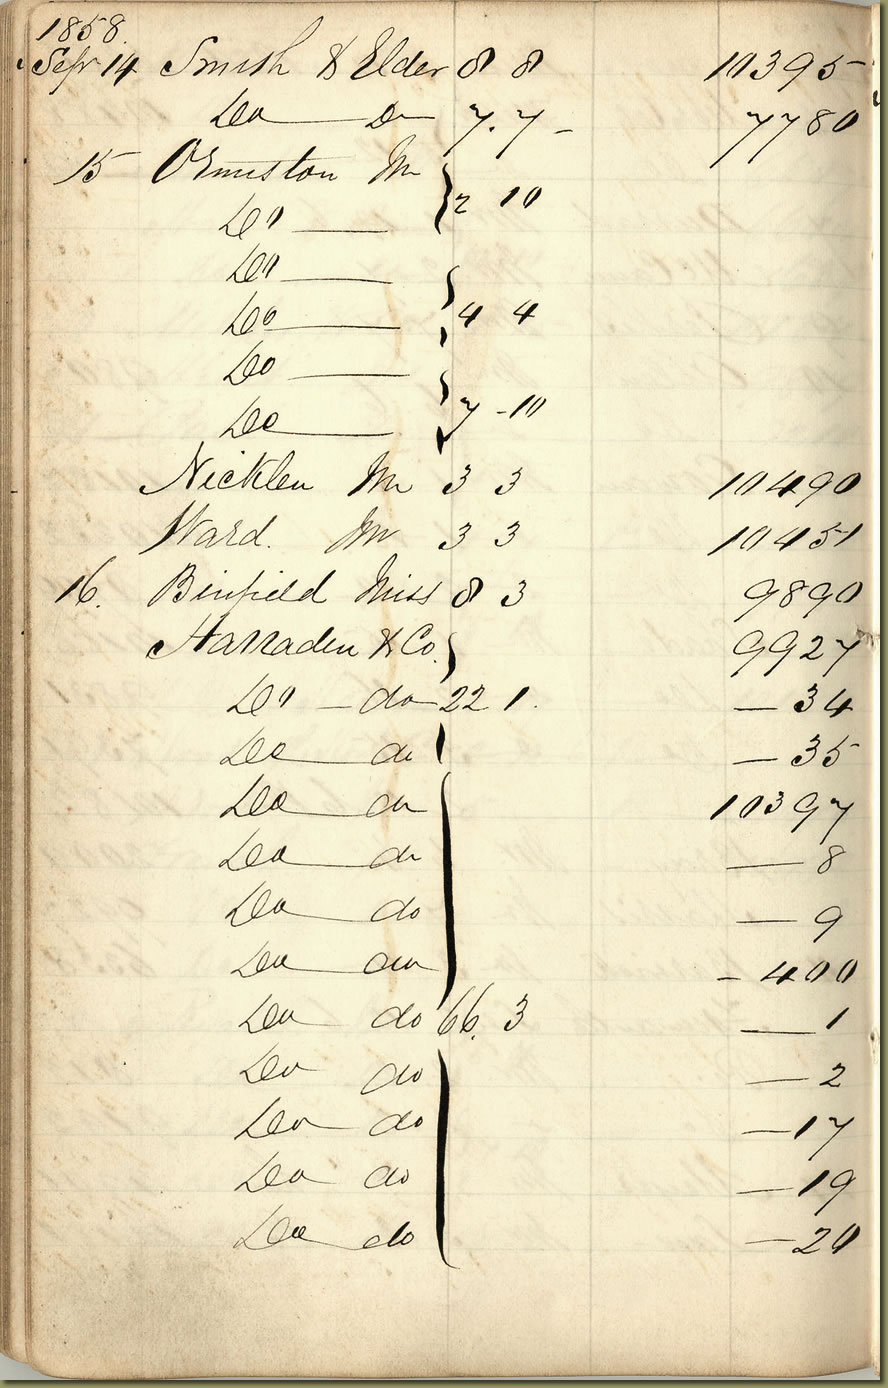 1858
Sepr 14 Smith & Elder 8 8 10395
Do Do 7. 7 - 7780
15 Ormiston Mr
Do 2 10
Do
Do 4 4
Do
Do 7 - 10
Nicklen Mr 3 3 10490
Ward. Mr 3 3 10451
16. Binfield Miss 8 3 9890
Harraden & Co. 9927
Do - do 22 1. - 34
Do do - 35
Do do 10397
Do do - 8
Do do - 9
Do do - 400
Do do 66. 3 - 1
Do do - 2
Do do - 17
Do do - 19
Do do - 20